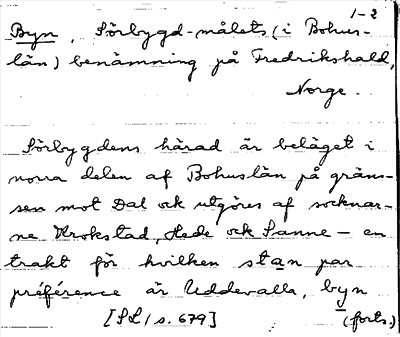 1-2
Byn, Sörbygd-målets (i Bohus-
län) benämning på Fredrikshald,
Norge.
Sörbygdens härad är beläget i
norra delen af Bohuslän på gräns-
sen mot Dal ock utgöres af socknar-
ne Krokstad, Hede ock Sanne – en
trakt för hvilken stan par
préférence är Uddevalla, byn
[SL/s. 679] (forts.)